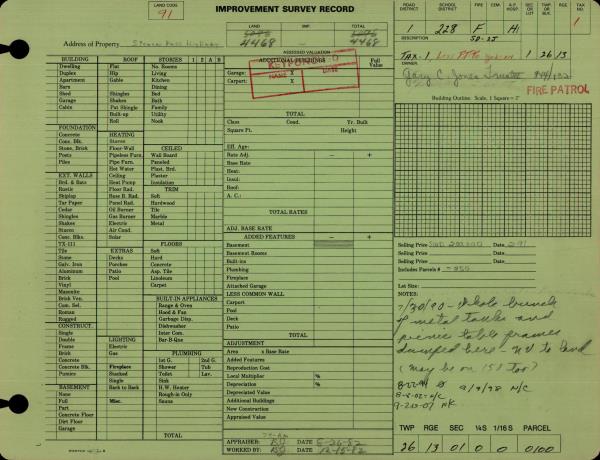 LAND CODE
91
IMPROVEMENT SURVEY RECORD
LAND
TOTAL
4468
4468
Address of Property
Stevens Pass Highway
ASSESSED VALUATION
ROAD DISTRICT
SCHOOL DISTRICT
FIRE
HOSP
SEC OR LOT
TAX NO.
1
228
F
H1
1
TAX-1
1 26 13
OWNER
Gary C. Jones Trustee
FIRE PATROL
Building Outline: Scale, 1 Square = 2'
KEYPUNCHED
NAME
DATE
BUILDING
ROOF
STORIES 1 2 A B
Dwelling Flat No. Rooms
Duplex Hip Living
Apartment Gable Kitchen
Barn Dining
Shed Shingles Bed
Garage Shakes Bath
Cabin Pat Shingle Family
Built-up Utility
Roll Nook
FOUNDATION
Concrete HEATING
Conc. Blk. Stoves CEILED
Stone, Brick Floor-Wall Wall Board
Posts Pipeless Furn. Paneled
Piles Pipe Furn. Plast. Brd.
Hot Water Plaster
EXT. WALLS Ceiling Insulation
Brd. & Bats Heat Pump TRIM
Rustic Floor Rad. Soft
Shiplap Base B. Rad. Hardwood
Tar Paper Panel Rad. Tile
Cedar Oil Burner Marble
Shingles Gas Burner Metal
Shakes Electric
Stucco Air Cond.
Conc. Blks. Solar
TX-111 FLOORS
Tile EXTRAS Soft
Stone Decks Hard
Galv. Iron Porches Concrete
Aluminum Patio Asp. Tile
Brick Pool Linoleum
Vinyl Carpet
Masonite
Brick Ven. BUILT-IN APPLIANCES
Com. Sel. Range & Oven
Roman Hood & Fan
Rugged Garbage Disp.
CONSTRUCT. Dishwasher
Single Inter Com.
Double LIGHTING Bar-B-Que
Frame Electric
Brick Gas PLUMBING
Concrete 1st G. 2nd G.
Concrete Blk. Fireplace Shower Tub
Pumice Stacked Toilet Lav.
Single Sink
BASEMENT Back to Back H.W. Heater
None Rough-in Only
Full Misc. Sauna
Part
Concrete Floor
Dirt Floor
Garage
TOTAL
ADDITIONAL BUILDINGS
Full Value
Garage: X
Carport: X
TOTAL
Class Cond. Yr. Built
Square Ft. Height
Eff. Age:
Rate Adj. − +
Base Rate
Heat:
Insul:
Roof:
A. C.:
TOTAL RATES
ADJ. BASE RATE
ADDED FEATURES − +
Basement
Basement Rooms
Built-ins
Plumbing
Fireplace
Attached Garage
LESS COMMON WALL
Carport
Pool
Deck
Patio
TOTAL
ADJUSTMENT
Area x Base Rate
Added Features
Reproduction Cost
Local Multiplier %
Depreciation %
Depreciated Value
Additional Buildings
New Construction
Appraised Value
APPRAISER: RJ DATE 8-26-82
WORKED BY: RJ DATE 12-15-82
Selling Price
Selling Price
Includes Parcels
Lot Size:
NOTES:
7/30/90 - Whole bunch
of metal tanks and
picnic table frames
dumped here - NV to land
(may be on 151 too)
9/9/98 N/C
8-8-02 - N/C
TWP RGE SEC ¼S 1/16S PARCEL
26 13 01 0 0 0100